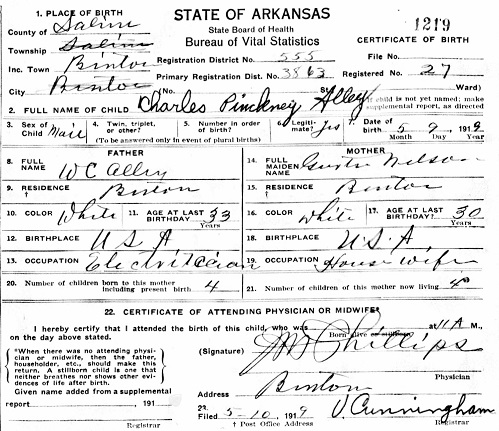 1. PLACE OF BIRTH
STATE OF ARKANSAS
County of Saline
State Board of Health
1219
Township Saline
Bureau of Vital Statistics
CERTIFICATE OF BIRTH
Inc. Town Binton
Registration District No. 555
File No.
City Binton
Primary Registration Dist. No. 3863
Registered No. 27
St. Ward)
2. FULL NAME OF CHILD Charles Pinckney Alley
If child is not yet named; make supplemental report, as directed
3. Sex of Child Male
4. Twin, triplet, or other?
5. Number in order of birth?
6. Legitimate? Yes
7. Date of birth 5 9 1919
(To be answered only in event of plural births)
Month Day Year
FATHER
MOTHER
8. FULL NAME W C Alley
14. FULL MAIDEN NAME Nelson
9. RESIDENCE † Binton
15. RESIDENCE † Binton
10. COLOR White
11. AGE AT LAST BIRTHDAY? 33 Years
16. COLOR White
17. AGE AT LAST BIRTHDAY? 30 Years
12. BIRTHPLACE U.S.A.
18. BIRTHPLACE U.S.A.
13. OCCUPATION
19. OCCUPATION House wife
20. Number of children born to this mother including present birth 4
21. Number of children of this mother now living 4
22. CERTIFICATE OF ATTENDING PHYSICIAN OR MIDWIFE
I hereby certify that I attended the birth of this child, who was Born alive or stillborn at 11 A M.,
on the day above stated.
*When there was no attending physician or midwife, then the father, householder, etc., should make this return. A stillborn child is one that neither breathes nor shows other evidences of life after birth.
(Signature) Phillips
Physician
Given name added from a supplemental
Address Binton
report , 191
22. Filed 5-10, 1919 V. Cunningham
Registrar
† Post Office Address
Registrar